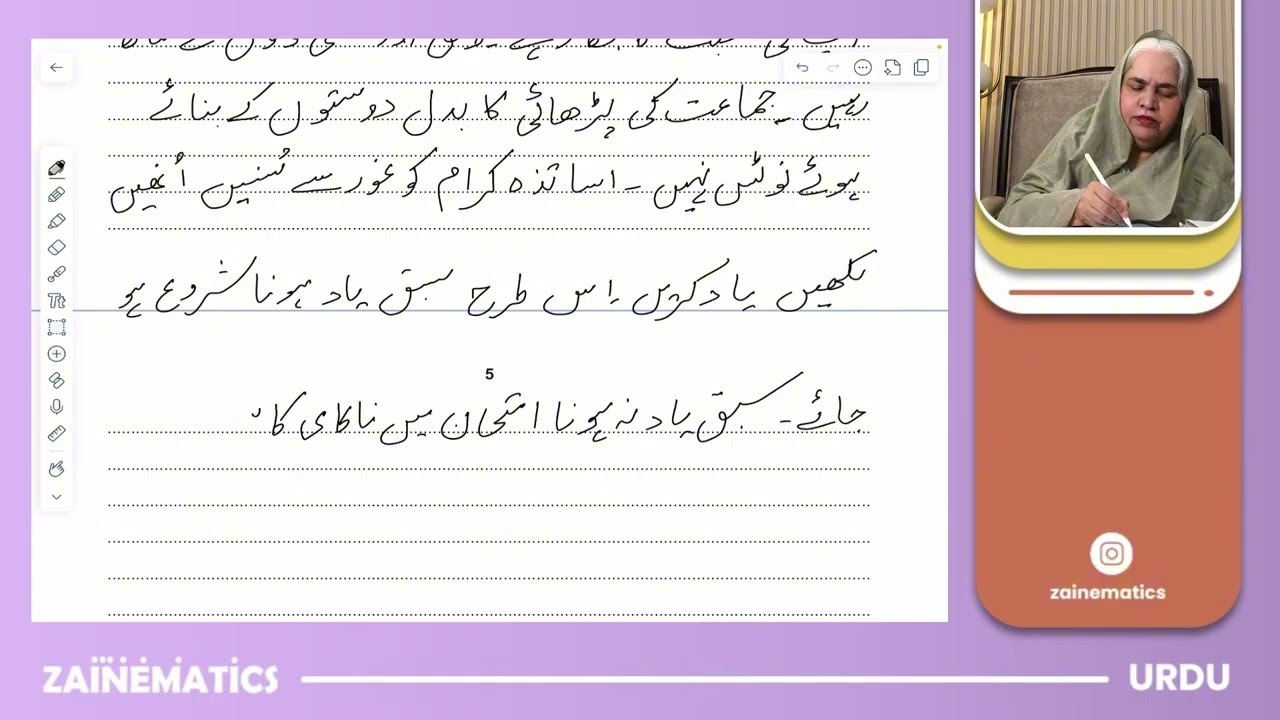 رہیں ۔ جماعت کی پڑھائی کا بدل دوستوں کے بنائے
ہوئے نوٹس نہیں ۔ اساتذہ کرام کو غور سے سُنیں اُنھیں
لکھیں یاد کریں ۔ اِس طرح سبق یاد ہونا شروع ہو
5
جائے ۔ سبق یاد نہ ہونا امتحان میں ناکامی کا
Tt
zainematics
ZAINEMATICS
URDU